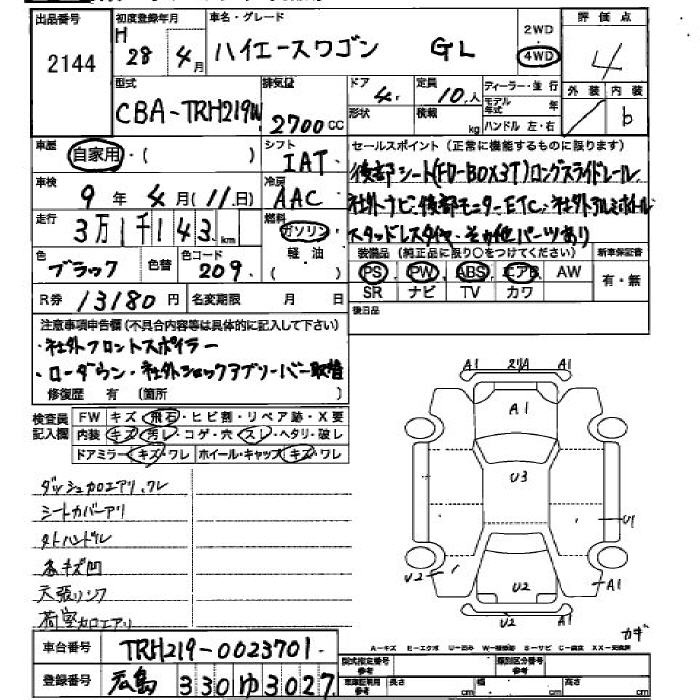 出品番号 初度登録年月 車名・グレード 2WD 評価点
2144 H 28年 4月 ハイエースワゴン GL 4WD 4
型式 排気量 ドア 定員 ディーラー・並行 外装 内装
CBA-TRH219W 2700cc 4 10人 モデル年式 年 b
形状 積載 kg ハンドル 左・右
車歴 自家用・( ) シフト IAT セールスポイント(正常に機能するものに限ります)
後部シート(FD-BOX3T)ロングスライドレール
車検 9年 4月(11日) 冷房 AAC
社外ナビ・後部モニターETC、社外アルミホイール
走行 3万1千143km 燃料 ガソリン
スタッドレスタイヤ・その他パーツあり
軽油 装備品(純正品に限り○をつけてください) 新車保証書
色 ブラック 色替 色コード 209
PS PW ABS エアB AW 有・無
SR ナビ TV カワ
R券 13180円 名変期限 月 日
後日品
注意事項申告欄(不具合内容等は具体的に記入して下さい)
・社外フロントスポイラー
・ローダウン・社外ショックアブソーバー取替
修復歴 有 (箇所 )
検査員記入欄 FW キズ・飛石・ヒビ割・リペア跡・X要
内装 キズ・汚レ・コゲ・穴・スレ・ヘタリ・破レ
ドアミラー キズ・ワレ ホイール・キャップ キズ・ワレ
A1 A1
A1
U3
U1
U2 U2 A1
U2
ダッシュカロエアリ、ワレ
シートカバーアリ
タトハンドル
天張リ
荷室カロエアリ
カギ
車台番号 TRH219-0023701
A-キズ E-エクボ U-凹み W-補修跡 S-サビ C-腐食 XX-交換済
型式指定番号 参考 類別区分番号 参考
登録番号 広島 330 ゆ 3027
長さ cm 幅 cm 高さ cm